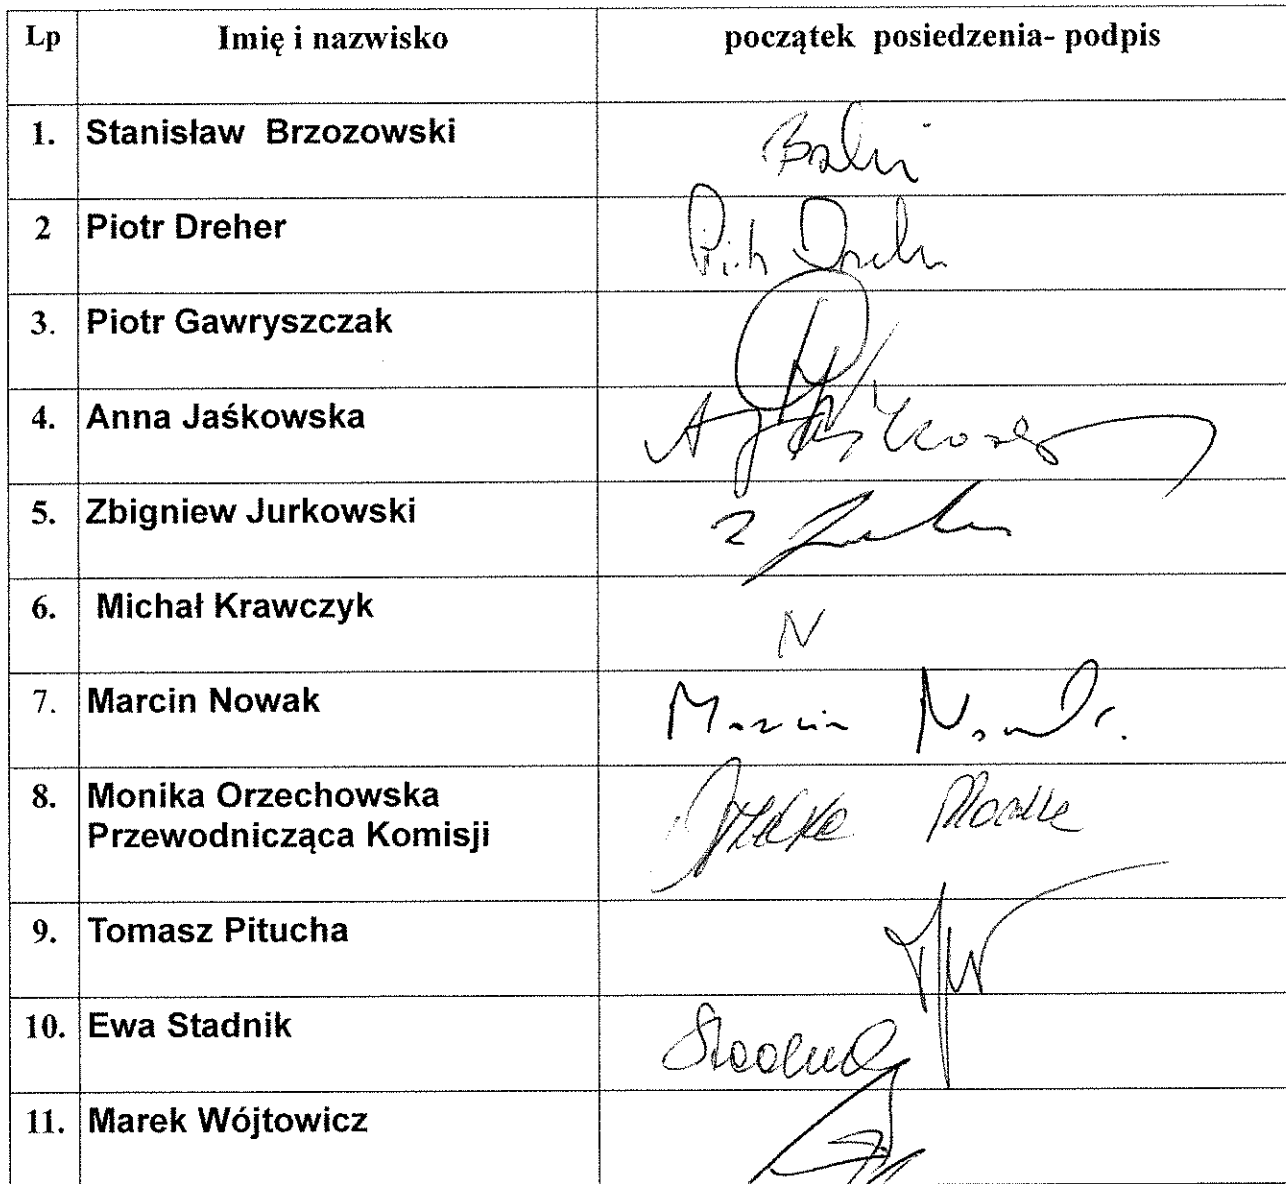 Lp Imię i nazwisko początek posiedzenia- podpis
1. Stanisław Brzozowski
2 Piotr Dreher
3. Piotr Gawryszczak
4. Anna Jaśkowska
5. Zbigniew Jurkowski
6. Michał Krawczyk N
7. Marcin Nowak Marcin Nowak
8. Monika Orzechowska
Przewodnicząca Komisji
9. Tomasz Pitucha
10. Ewa Stadnik
11. Marek Wójtowicz